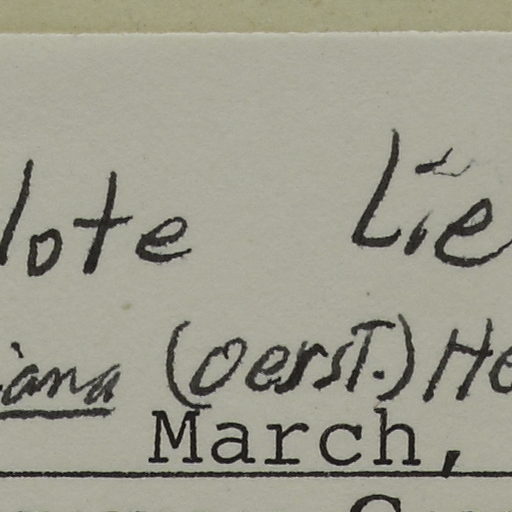 lote Lie
iana (Oerst.) He
March,